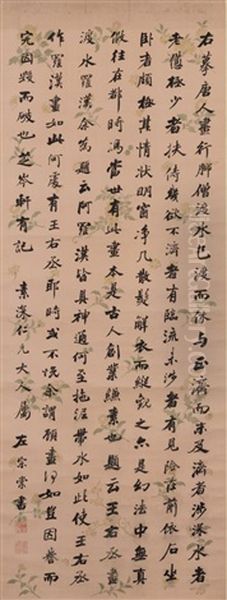 右摹唐人畫行脚僧渡水已渡而休与正濟而未及濟者涉深水者
老憊極少者扶侍幾欲不濟者有臨流未涉者有見險在前依石坐
臥者頗極其情狀明窗淨几散髮解衣而縱觀之亦是幻法中無真
假往在都時馮當世有此畫本是古人創業縑素也題云王右丞畫
渡水羅漢余為題云阿羅漢皆具神通何至拖泥帶水如此使王右丞
作羅漢畫如此何處有王右丞耶時或不悅余謂顧畫何如豈因譽而
完因毀而破也芝岑軒有記
素溪仁兄大人屬
左宗棠書